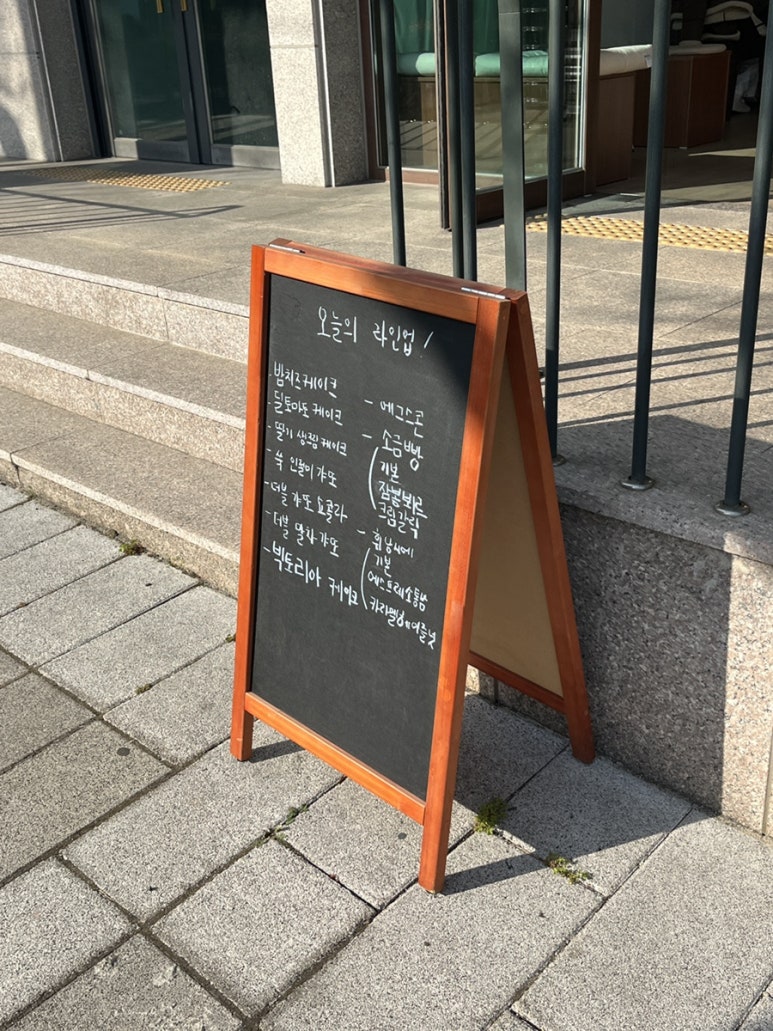 오늘의 라인업!
- 밤치즈케이크
- 딜토마토 케이크
- 딸기 생크림 케이크
- 쑥 인절미 갸또
- 더블 갸또 쇼콜라
- 더블 말차 갸또
- 빅토리아 케이크
- 에그스콘
- 소금빵
기본
잠봉뵈르
크림갈릭
- 휘낭시에
기본
에스프레소통밤
카라멜헤이즐넛